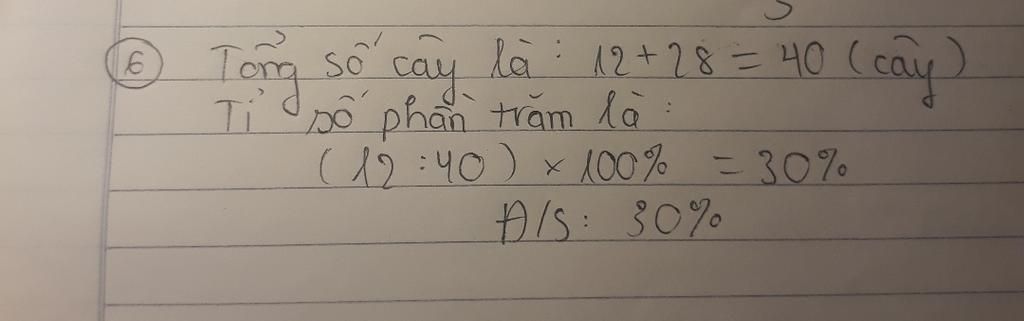 6 Tổng số cây là: 12 + 28 = 40 (cây)
Tỉ số phần trăm là:
(12 : 40) × 100% = 30%
Đ/S: 30%